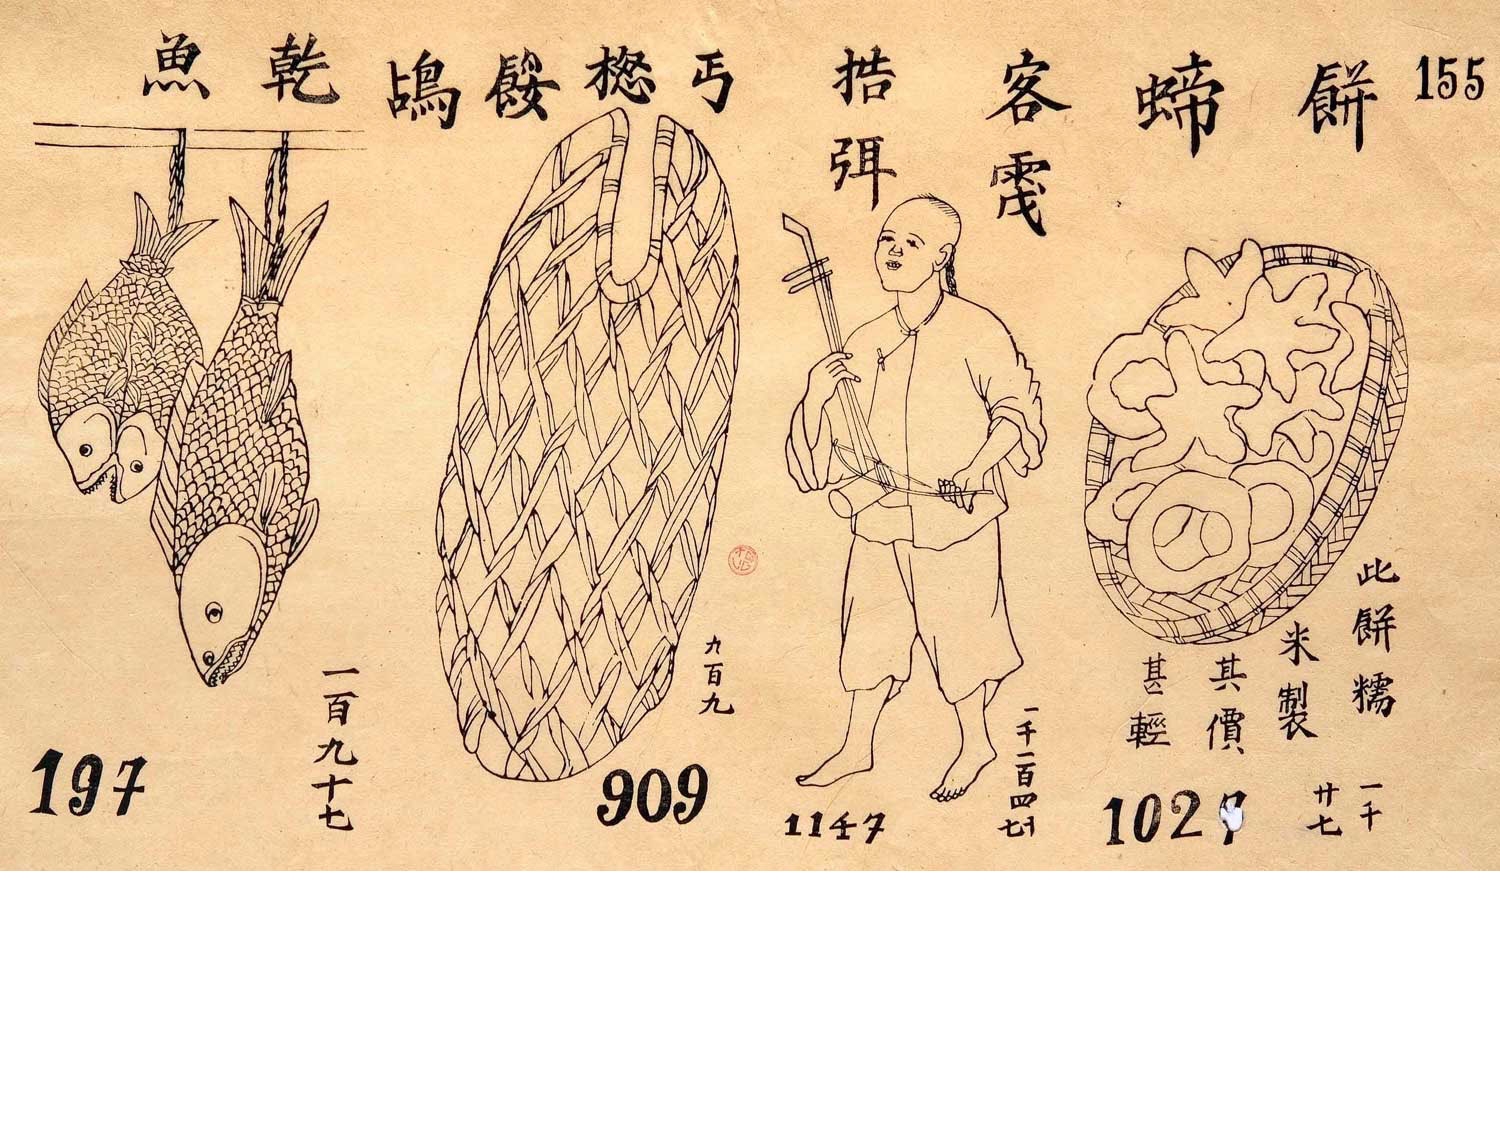 155
餅䗖
客
捁弭
丐
乾魚
此餅糯
米製
其價
甚輕
一千
廿七
1027
一千一百四十七
1147
九百九
909
一百九十七
197